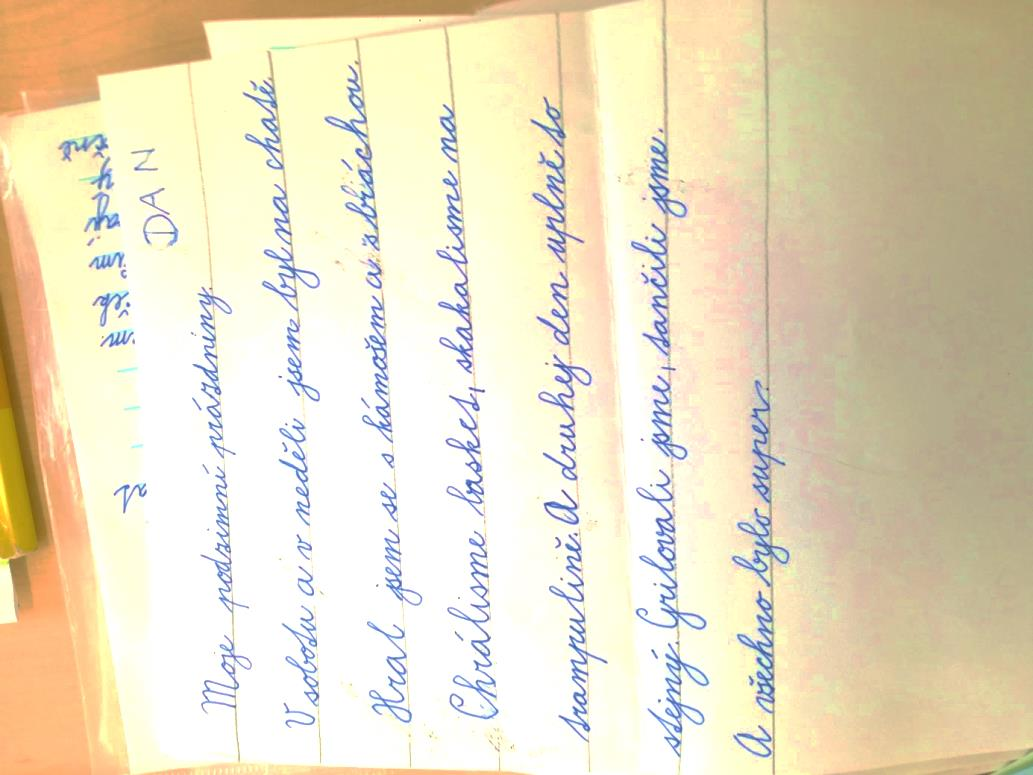 DAN
Moje podzimní prázdniny.
V sobotu a v neděli jsem byl na chatě.
Hrál jsem se s kámošem a s bráchou.
Chrálisme basket, skakalisme na
trampulíně. A druhej den uplně to
stejný. Grilovali jsme, tančili jsme.
A všechno bylo super.